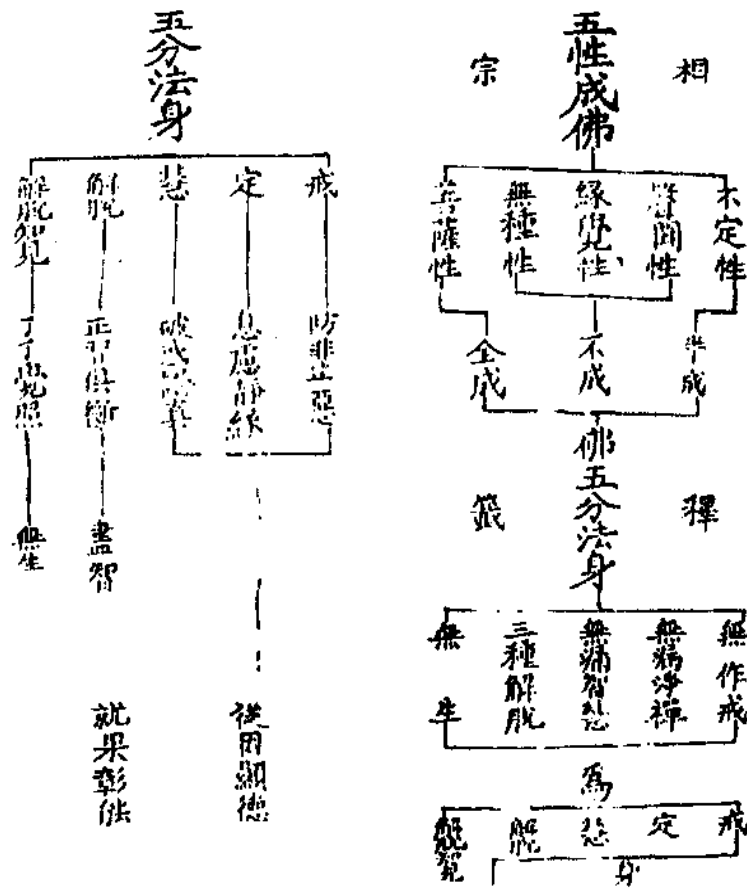 相宗
五性成佛
不定性
聲聞性
緣覺性
無種性
菩薩性
半成
不成
全成
釋籤
佛五分法身
無作戒
無漏淨禪
無漏智慧
三種解脫
無生
為
戒
定
慧
解
身
五分法身
戒
定
慧
解脫
解脫智見
防非止惡
息慮靜緣
破惑證真
正習俱斷
了了覺照
盡智
無生
從因顯德
就果彰能